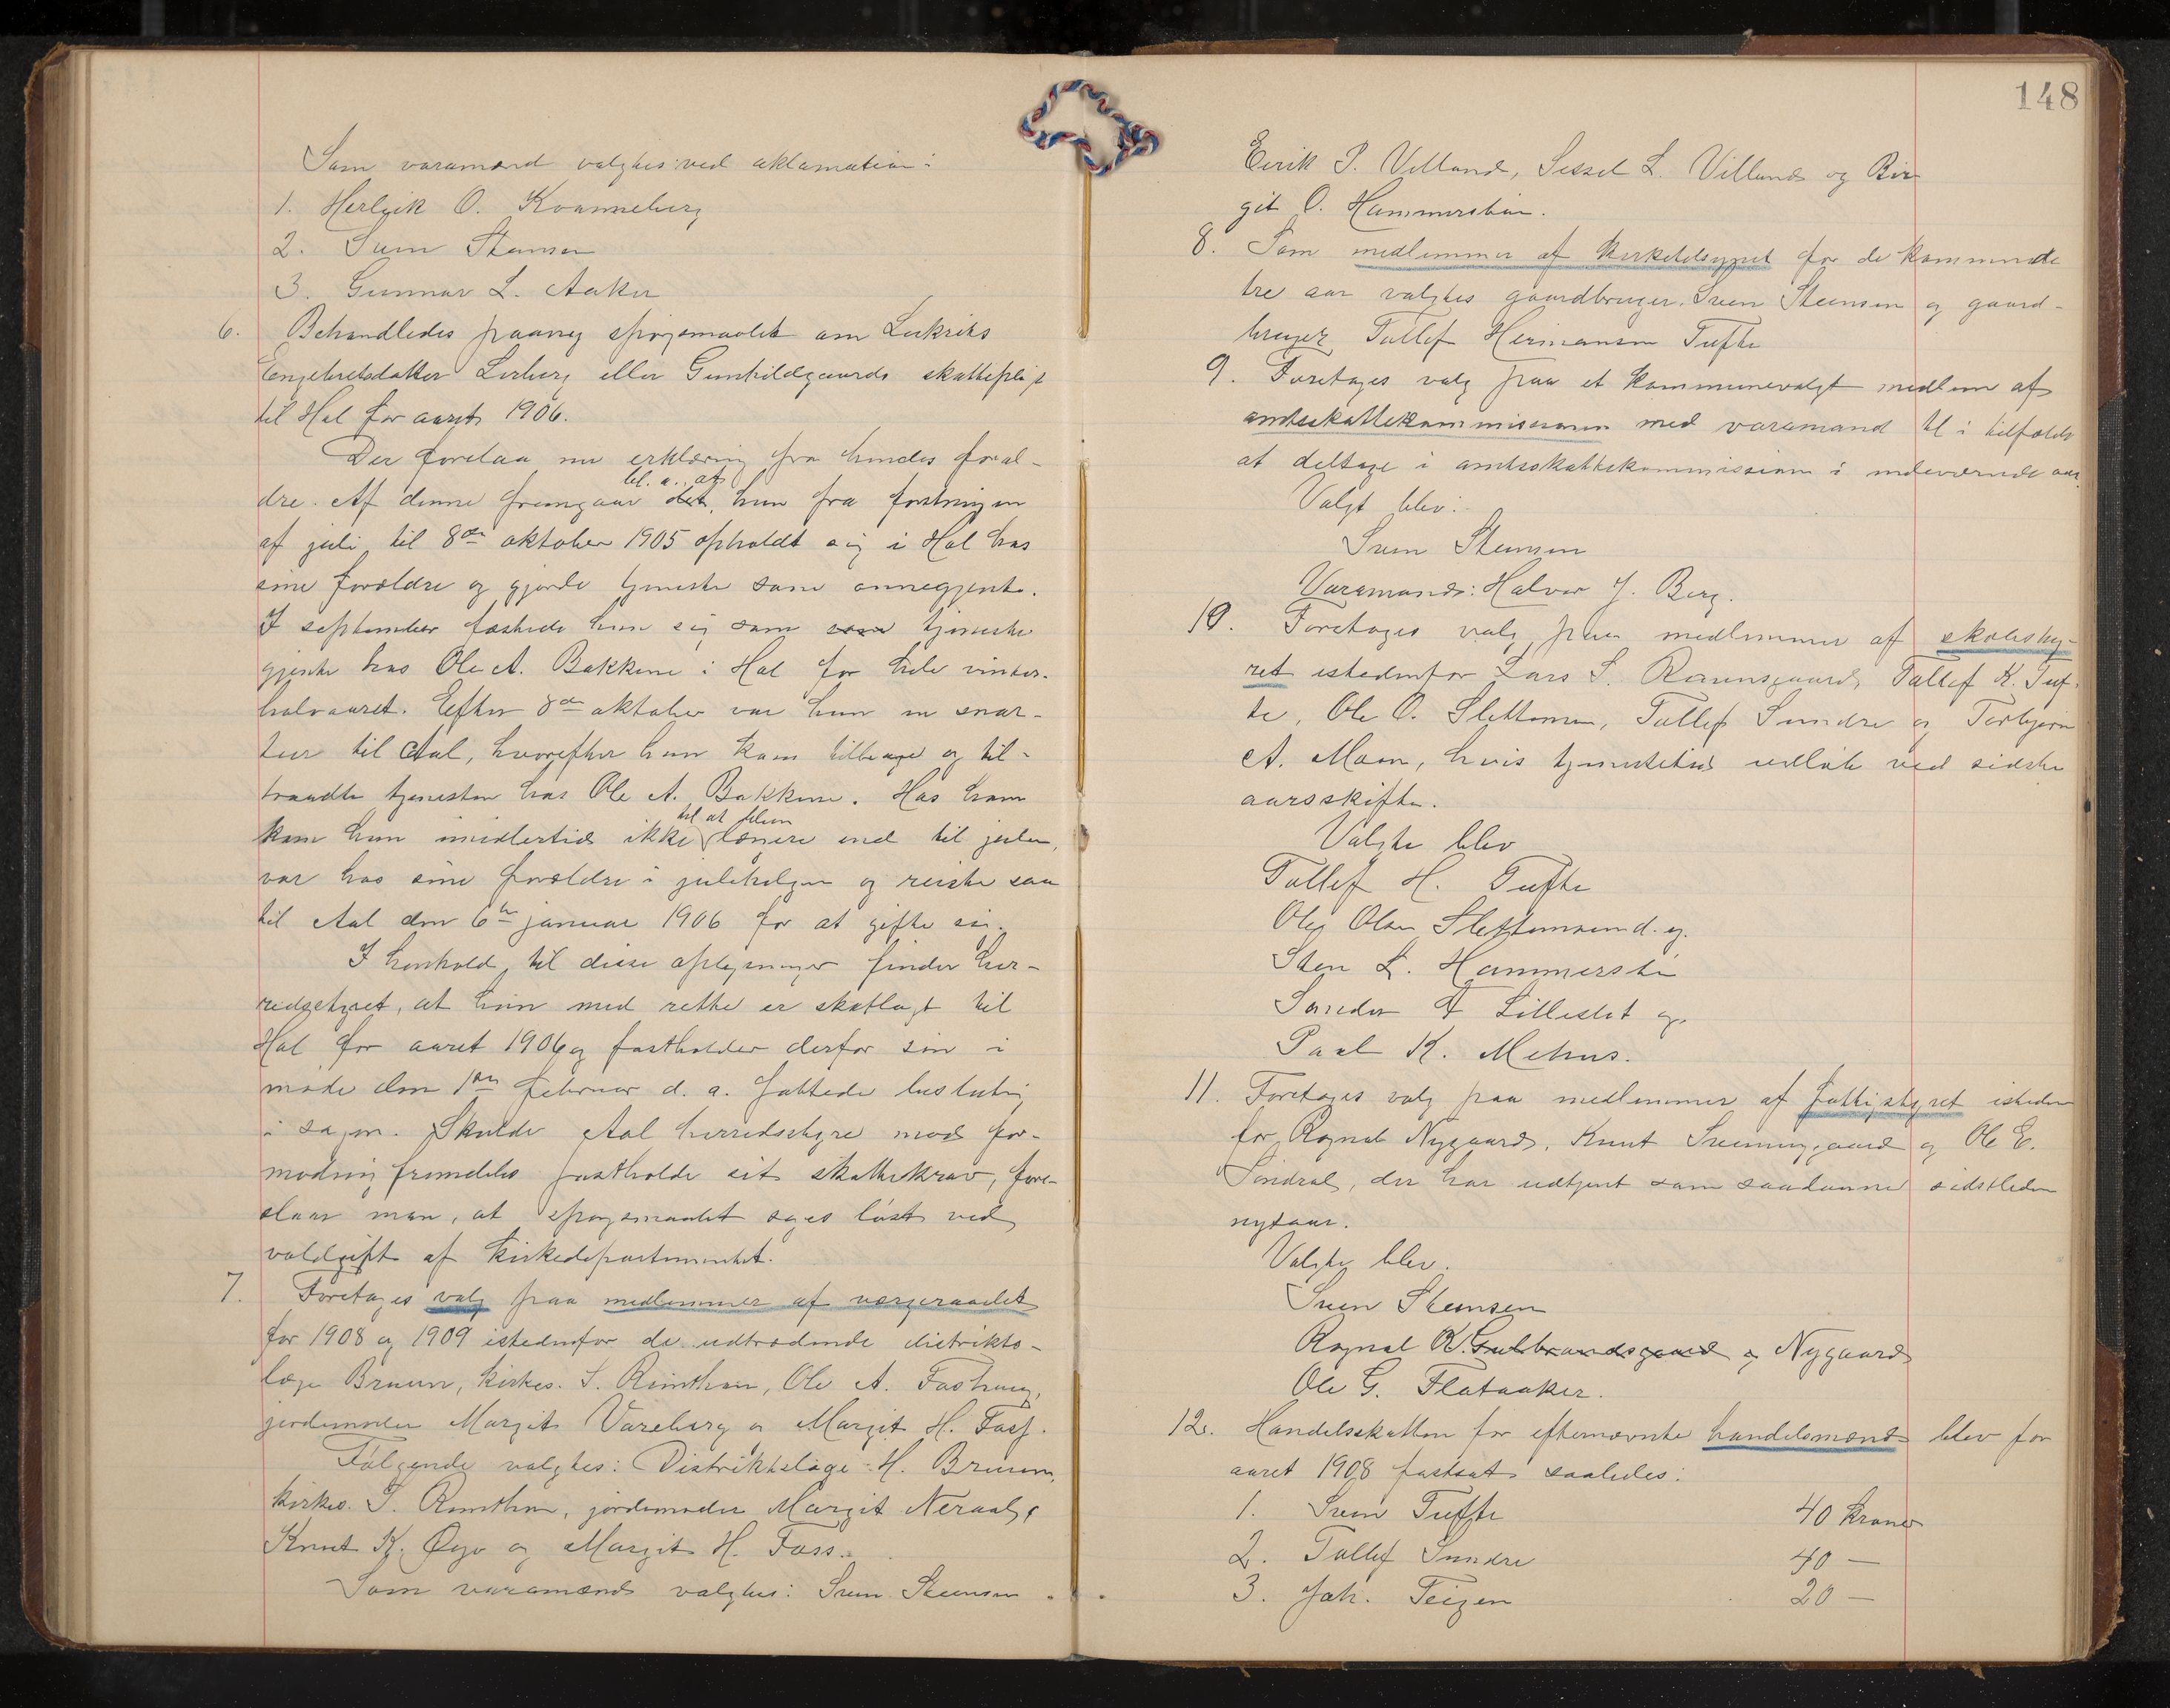 Som varamænd valgtes ved aklamation:
1. Herleik O. Kvanneberg
2. Svein Steinsen
3. Gunnar L. Aaker
6. Behandledes paany spørgsmaalet om
Engebretsdatter Lerberg eller Gunhildgaards skattepligt
til Hol for aaret 1906.
Der forelaa nu erklæring fra hendes foræl-
dre. Af denne fremgaar det, bl. a., at hun fra
af juli til 8de oktober 1905 opholdt sig i Hol hos
sine forældre og gjorde tjeneste som onnegjente.
I september fæstede hun sig som som tjeneste
gjente hos Ole A. Bakkene i Hol for hele vinter-
halvaaret. Efter 8de oktober var hun en snar-
tur til Aal, hvorefter hun kom tilbage og til-
traadte tjenesten hos Ole A. Bakkene. Hos ham
kom hun imidlertid ikke til at blive længere end til julen,
var hos sine forældre i julehelgen og reiste saa
til Aal den 6te januar 1906 for at gifte sig.
I henhold til disse oplysninger finder her-
redsstyret, at hun med rette er skatlagt til
Hol for aaret 1906 og fastholder derfor sin i
møde den 1ste februar d. a. fattede beslutning
i sagen. Skulde Aal herredsstyre mod for-
modning fremdeles fastholde sit skattekrav, fore-
slaar man, at spørgsmaalet søges løst ved
voldgift af kirkedepartementet.
7. Foretoges valg paa medlemmer af værgeraadet
for 1908 og 1909 istedenfor de udtrædende distrikts-
læge Bruun, kirkes. S. Reinton, Ole A.
jordemoder Margit Vareberg og Margit H. Foss.
Følgende valgtes: Distriktslæge H. Bruun,
kirkes. S. Reinton, jordemoder Margit Neraal,
Knut K. Øyo og Margit H. Foss.
Som varamænd valgtes: Svein Steinsen
148
Eirik P. Villand, Sissel L. Villand og Bir
git O. Hammersbøen.
8. Som medlemmer af kirketilsynet for de kommende
tre aar valgtes gaardbruger Svein Steinsen og gaard-
bruger Tollef Hermansen Tufte
9. Foretoges valg paa et kommunevalgt medlem af
amtsskattekommissionen med varamand til i tilfælde
at deltage i amtsskattekommissionen i indeværende aar.
Valgt blev:
Svein Steinsen
Varamand: Halvor J. Berg.
10. Foretoges valg paa medlemmer af skolesty-
ret istedenfor Lars S. Raunsgaard, Tollef K. Tuf-
te, Ole O. Slettemoen, Tollef Sundre og Torbjørn
A. Moen, hvis tjenestetid udløb ved sidste
aarsskifte.
Valgte blev
Tollef H. Tufte
Ole Olsen Slettemoen d. y.
Sten L. Hammersbø
Sander A Lilleslet og
Paal K. Mehus.
11. Foretoges valg paa medlemmer af fattigstyret isteden
for Ragnal Nygaard, Knut Sveinungaard og Ole E.
Sindral, der har udtjent som saadanne sidstleden
nytaar.
Valgte blev.
Svein Steinsen
Ragnal K. Gulbrandsgaard og Nygaard
Ole G. Flataaker.
12. Handelsskatten for efternævnte handelsmænd blev for
aaret 1908 fastsat saaledes:
1. Svein Tufte 40 kroner
2. Tollef Sundre 40 —
3. Joh. Teigen 20 —